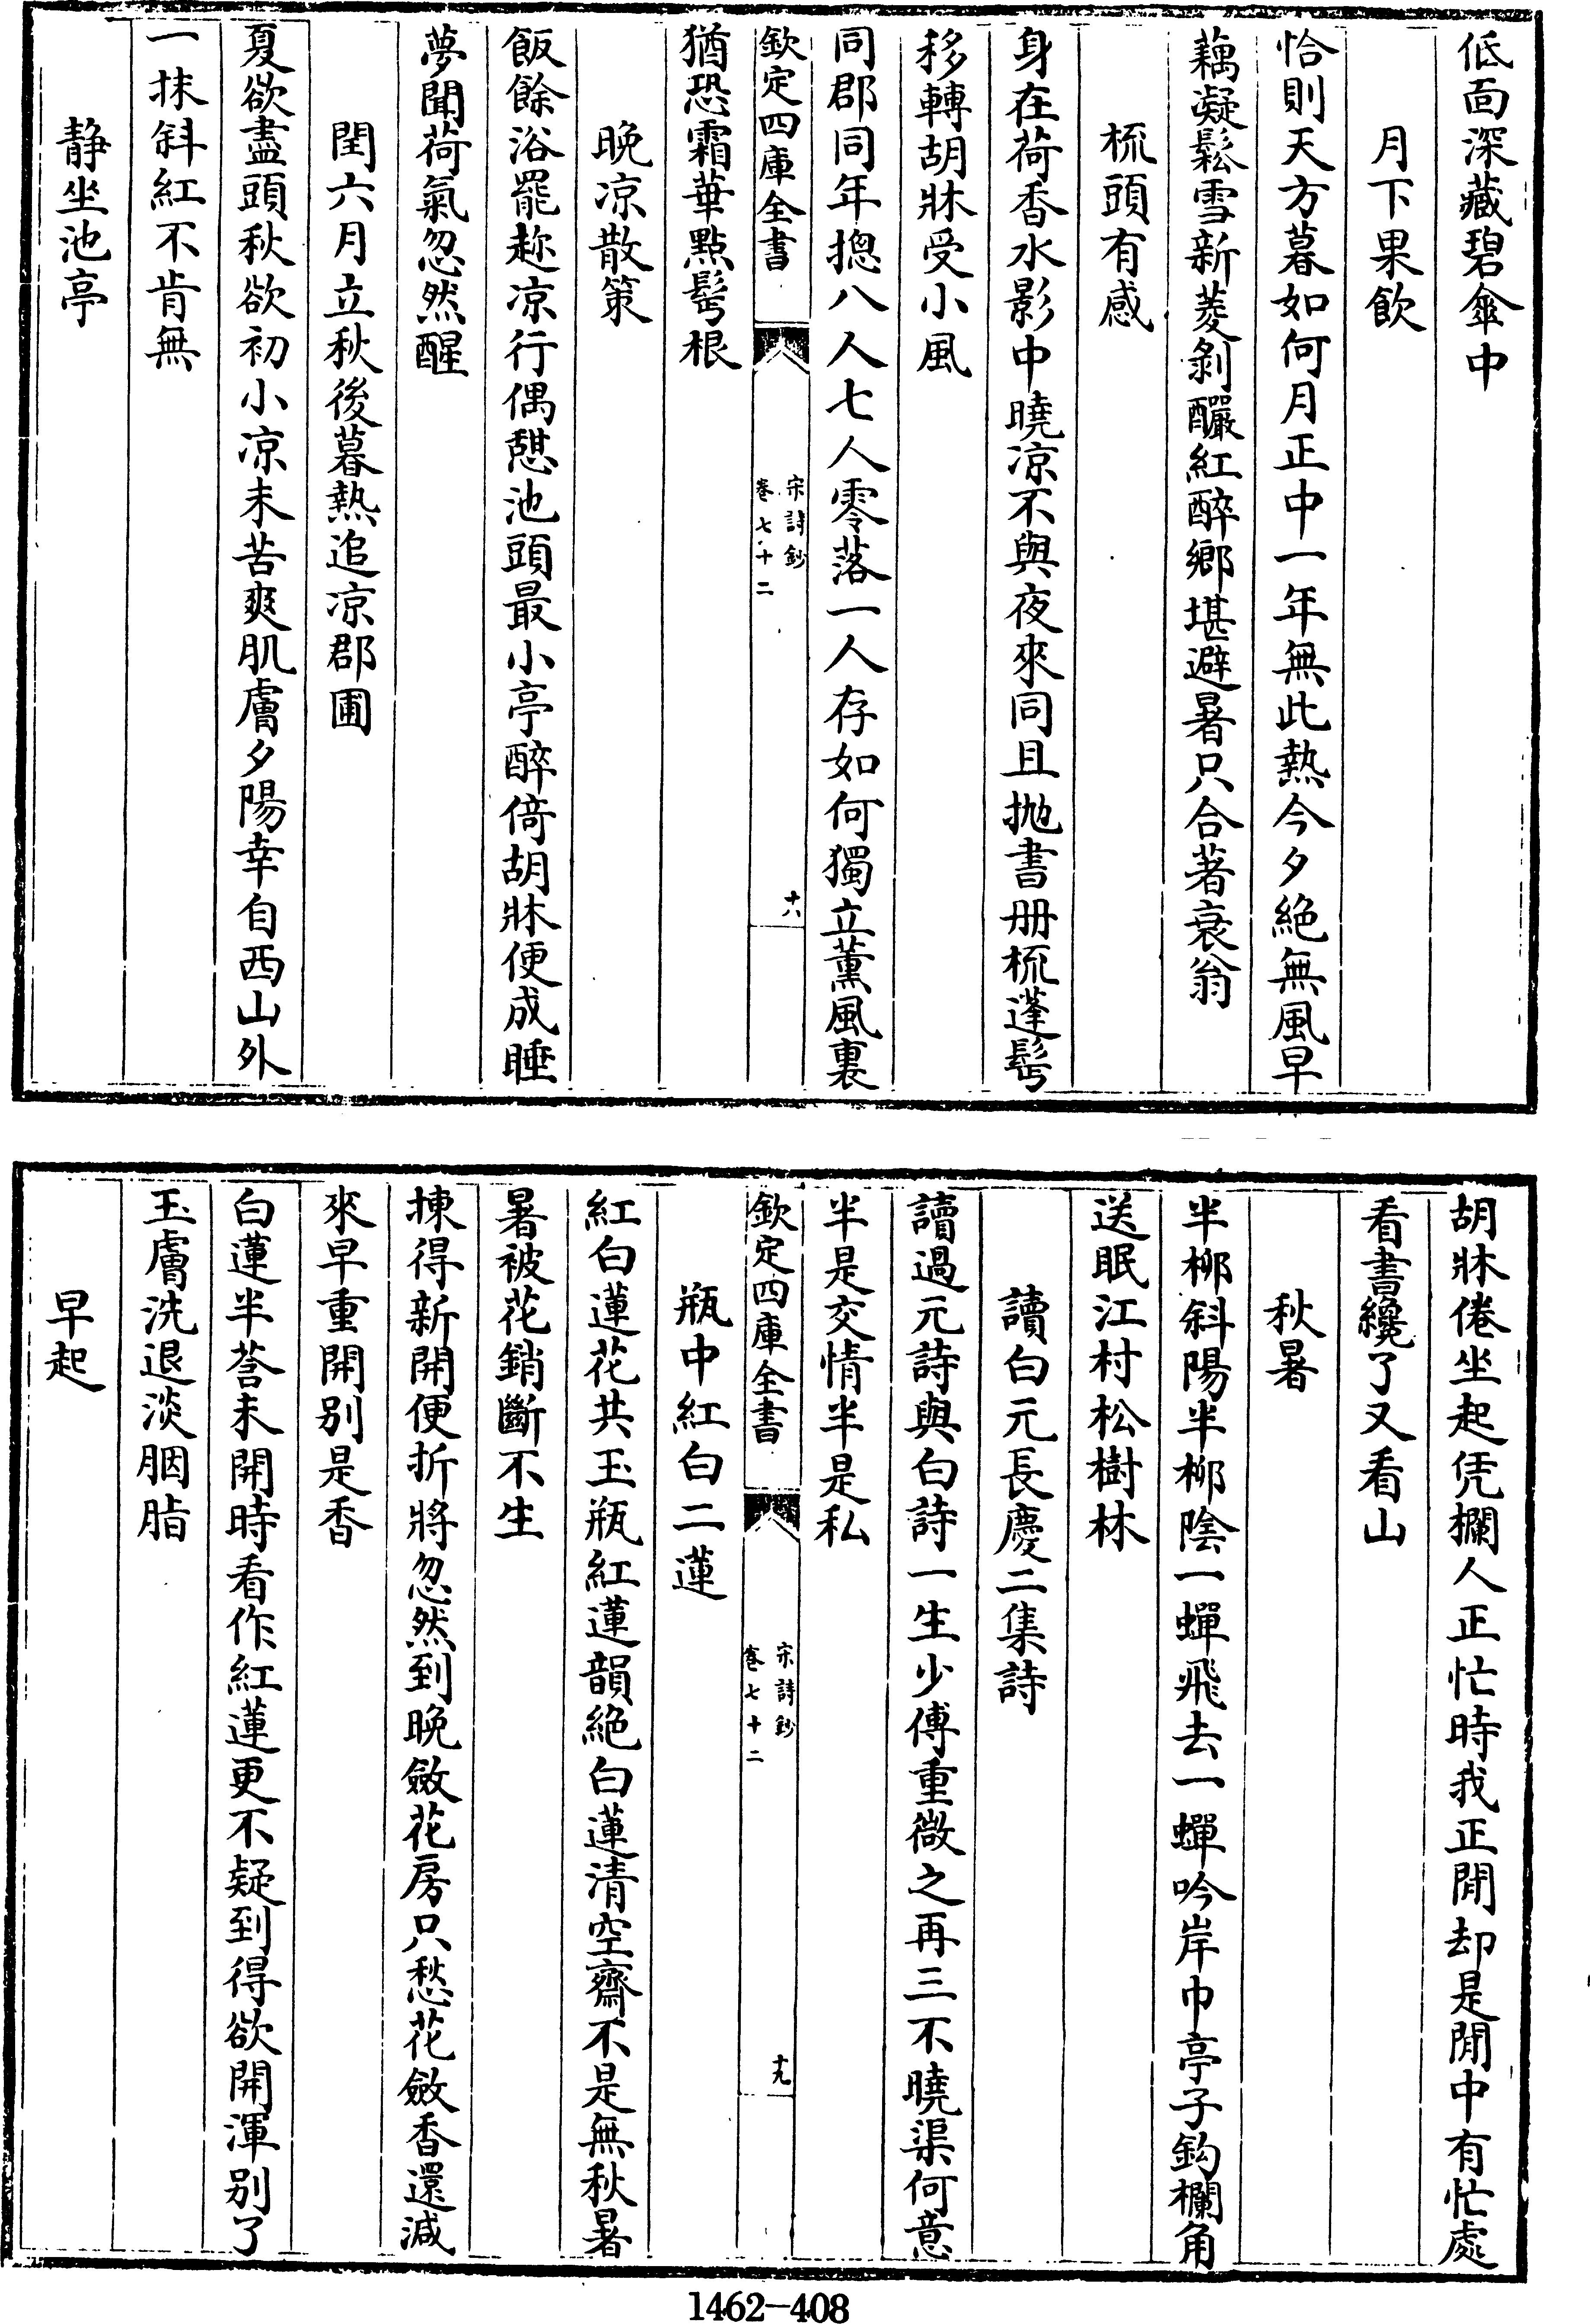 低面深藏碧傘中
月下果飲
恰則天方暮如何月正中一年無此熱今夕絶無風早
藕凝鬆雪新菱剝釅紅醉鄉堪避暑只合著衰翁
梳頭有感
身在荷香水影中曉凉不與夜來同且拋書册梳蓬髩
移轉胡牀受小風
同郡同年摠八人七人零落一人存如何獨立薰風裏
欽定四庫全書
宋詩鈔
卷七十二
十八
猶恐霜華點髩根
晚凉散策
飯餘浴罷趂凉行偶憇池頭最小亭醉倚胡牀便成睡
夢聞荷氣忽然醒
閏六月立秋後暮熱追凉郡圃
夏欲盡頭秋欲初小凉未苦爽肌膚夕陽幸自西山外
一抹斜紅不肯無
靜坐池亭
胡牀倦坐起凭欄人正忙時我正閒却是閒中有忙處
看書纔了又看山
秋暑
半栁斜陽半栁陰一蟬飛去一蟬吟岸巾亭子鈎欄角
送眠江村松樹林
讀白元長慶二集詩
讀過元詩與白詩一生少傅重微之再三不曉渠何意
半是交情半是私
欽定四庫全書
宋詩鈔
卷七十二
十九
瓶中紅白二蓮
紅白蓮花共玉瓶紅蓮韻絶白蓮清空齋不是無秋暑
暑被花銷斷不生
揀得新開便折將忽然到晚斂花房只愁花斂香還減
來早重開别是香
白蓮半荅未開時看作紅蓮更不疑到得欲開渾别了
玉膚洗退淡胭脂
早起
1462-408